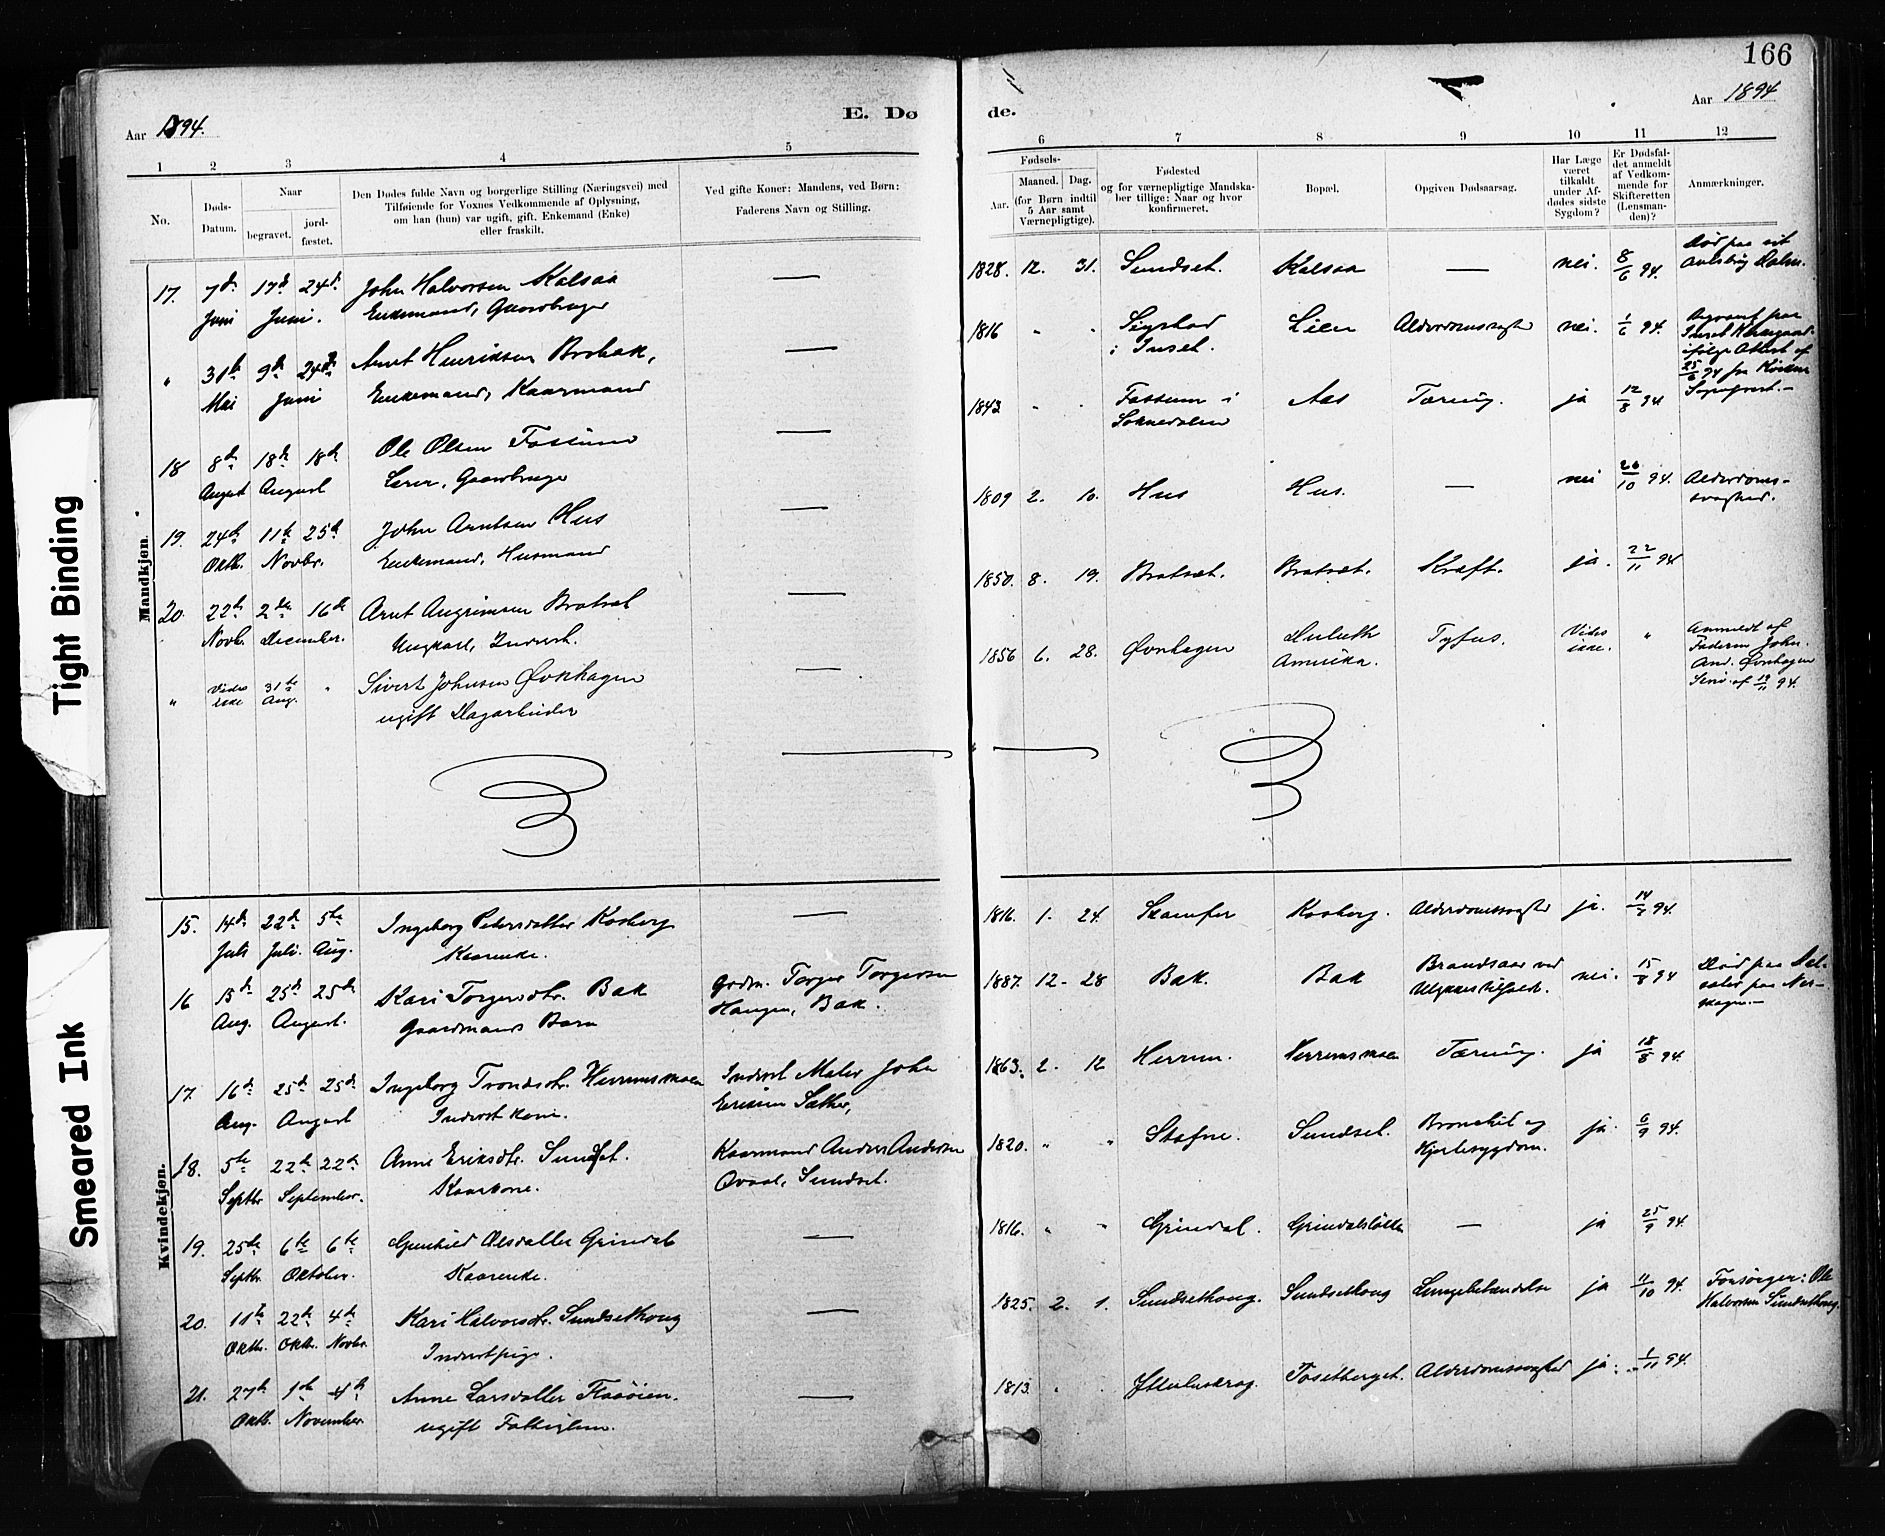 166
Aar 1894.
E. Dø
de.
Aar 1894
1 2 3 4 5
6 7 8 9 10 11 12
No.
Døds-
Datum.
Naar
begravet.
jord-
fæstet.
Den Dødes fulde Navn og borgerlige Stilling (Næringsvei) med
Tilføiende for Voxnes Vedkommende af Oplysning,
om han (hun) var ugift, gift, Enkemand (Enke)
eller fraskilt.
Ved gifte Koner: Mandens, ved Børn:
Faderens Navn og Stilling.
Fødsels-
Aar.
Maaned.
Dag.
(for Børn indtil
5 Aar samt
Værnepligtige).
Fødested
og for værnepligtige Mandska-
ber tillige: Naar og hvor
konfirmeret.
Bopæl.
Opgiven Dødsaarsag.
Har Læge
været
tilkaldt
under Af-
dødes sidste
Sygdom?
Er Dødsfal-
det anmeldt
af Vedkom-
mende for
Skifteretten
(Lensman-
den)?
Anmærkninger.
Mandkjøn.
17. 7de 17d 24d John Halvorsen Kalsaa — 1828. 12. 31. Sundset. Kalsaa — nei. 8/6 94. Død paa sit
Juni Juni. Enkemand, Gaardbruger
" 31te 9de 24de Arnt Henriksen Brobak, — 1816 " " Sigstad Lien Alderdomssvaghed nei. 1/6 94. Begravet paa
Mai Juni Enkemand, Kaarmand i Inset. Inset Kirkegaard
ifølge Attest af
25/6 94 fra
Sogneprest.—
18 8de 18de 18de Ole Olsen Fossum — 1843 " " Fossum i Aas Tæring. ja 12/8 94
August August Gaardbruger Soknedalen
19. 24de 11te 25de John Arntsen Hus — 1809 2. 10. Hus Hus. — nei 26/10 94. Alderdoms-
Oktb. Novbr. Enkemand, Husmand svaghed.
20. 22de 2den 16de Arnt Angrimsen Bratset — 1850. 8. 19. Bratset. Bratset. Kræft. ja. 22/11 94
Novb. December. Ungkarl, Inderst.
" Vides 31te " Sivert Johnsen Øvnhagen — 1856 6. 28. Øvnhagen Duluth Tyfus. Vides " Anmeldt af
ikke Aug. ugift Dagarbeider Amerika. ikke. Faderen John
And. Øvnhagen
af 19/11 94.
Kvindekjøn.
15. 14de 22de 5te Ingeborg Petersdatter Kosberg — 1816. 1. 24. Skamfer Kosberg. Alderdomssvaghed ja. 14/7 94.
Juli Juli. Aug. Kaarenke.
16 15de 25de 25de Kari Torgersdtr. Bak Grdm. Torger Torgersen 1887. 12- 28 Bak. Bak Brandsaar ved nei. 15/8 94 Død paa
Aug. August. Gaardmands Barn Haugen, Bak. Ulykkestilfælde.
17. 16de 25de 25de Ingeborg Trondsdtr. Herremsmoen Inderst Maler John 1863. 2. 12 Herrem. Herremsmoen Tæring. ja 18/8 94.
Aug. August Inderstkone. Eriksen Sæther,
18. 5te 22de 22de Anne Eriksdtr. Sundset. Kaarmand Anders Andersen 1820. " " Stafne. Sundset. Bronchit og ja. 6/9 94.
Septbr September. Kaarkone. Sundset. Hjertesygdom.
19. 25de 6te 6te Gunhild Olsdatter Grindal — 1816. " " Grindal. Grindalsløkken — ja 25/9 94.
Septbr. Oktober. Kaarenke.
20. 11te 22de 4de Kari Halvorsdtr. Sundsethoug — 1825. 2. 1. Sundsethoug. Sundsethoug Lungebetændelse ja 11/10 94. Forsørger: Ole
Oktbr. Oktb. Novbr. Inderstpige. Halvorsen Sundsethoug.
21. 27de 1ste 4de Anne Larsdatter Flaaøien. — 1813. " " Tosetberget. Alderdomssvaghed ja. 1/11 94.
Oktb. November. ugift Fattiglem.
Tight Binding
Smeared Ink